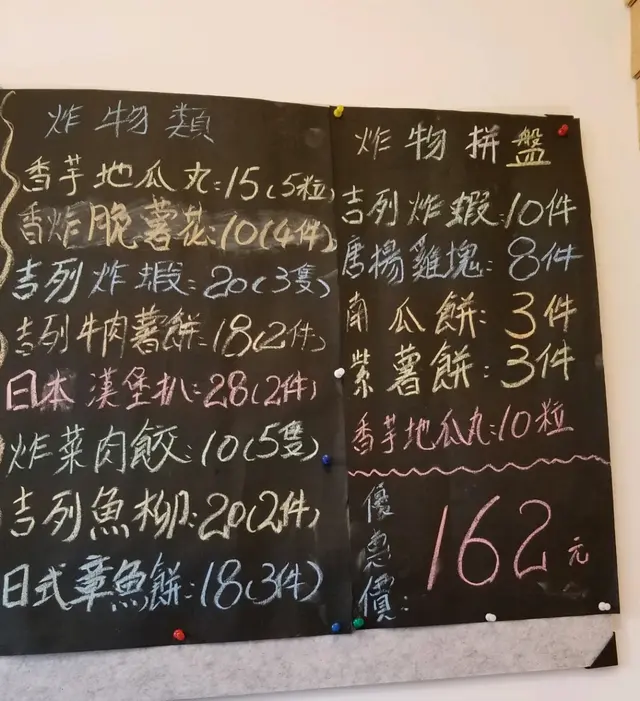 炸物類
香芋地瓜丸:15(5粒)
香炸脆薯花:10(4件)
吉列炸蝦:20(3隻)
吉列牛肉薯餅:18(2件)
日本漢堡扒:28(2件)
炸菜肉餃:10(5隻)
吉列魚柳:20(2件)
日式章魚餅:18(3件)
炸物拼盤
吉列炸蝦:10件
唐揚雞塊:8件
南瓜餅:3件
紫薯餅:3件
香芋地瓜丸:10粒
優惠價:162元